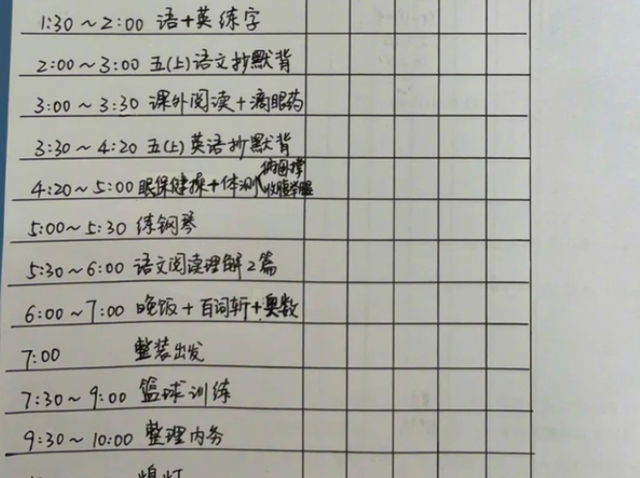 1:30～2:00 语+英练字
2:00～3:00 五(上)语文抄默背
3:00～3:30 课外阅读+滴眼药
3:30～4:20 五(上)英语抄默背
4:20～5:00 眼保健操+体测(俯卧撑 收腹举腿
5:00～5:30 练钢琴
5:30～6:00 语文阅读理解2篇
6:00～7:00 晚饭+百词斩+奥数
7:00 整装出发
7:30～9:00 篮球训练
9:30～10:00 整理内务
熄灯